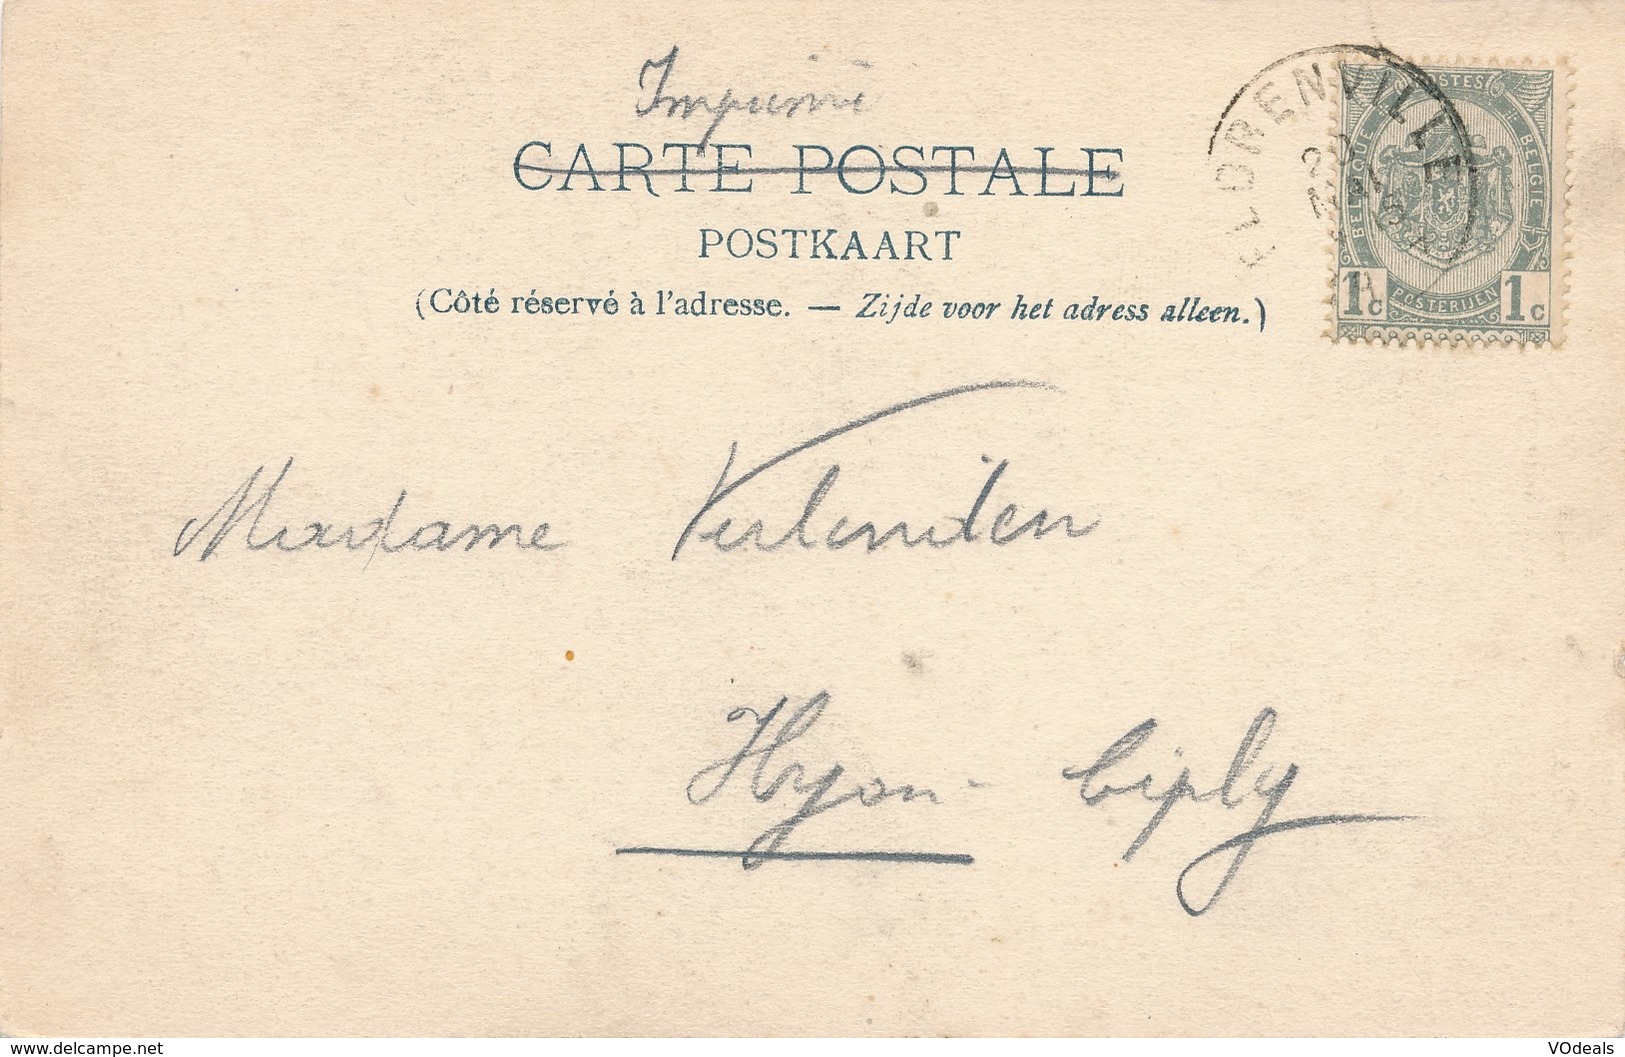 Imprimé
CARTE POSTALE
POSTKAART
(Côté réservé à l'adresse. — Zijde voor het adress alleen.)
FLORENVILLE
MAI
POSTES
BELGIQUE
BELGIË
1c
POSTERIJEN
1c
Madame Verlinden
Hyon-Ciply
www.delcampe.net
VOdeals